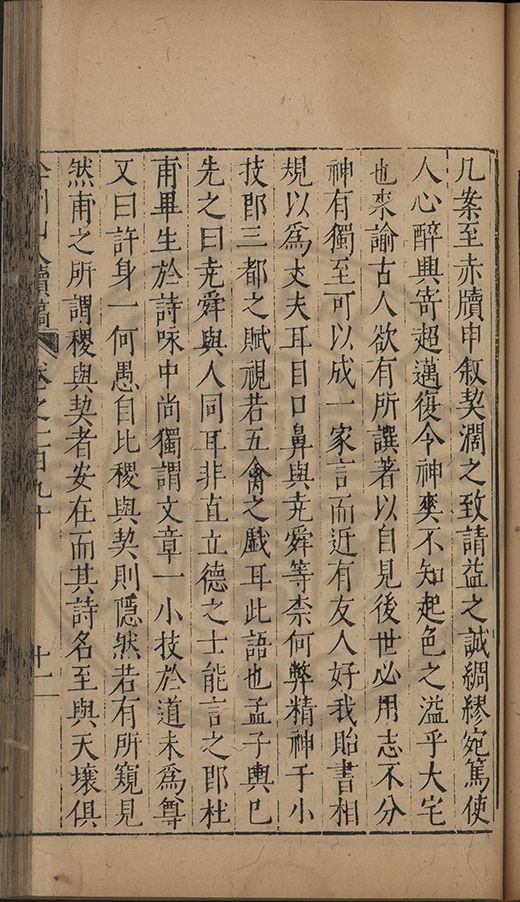 几案至赤牘申叙契濶之致請益之誠綢繆宛篤使
人心醉興寄超邁復令神爽不知起色之溢乎大宅
也來諭古人欲有所譔著以自見後世必用志不分
神有獨至可以成一家言而近有友人好我貽書相
規以爲丈夫耳目口鼻與尭舜等柰何弊精神于小
技郎三都之賦視若五禽之戲耳此語也孟子輿巳
先之曰尭舜與人同耳非直立德之士能言之郎杜
甫畢生於詩咏中尚獨謂文章一小技於道未爲尊
又曰許身一何愚自比稷與契則隱然若有所窺見
然甫之所謂稷與契者安在而其詩名至與天壤俱
弇州山人續稿 卷之一百九十 廿一